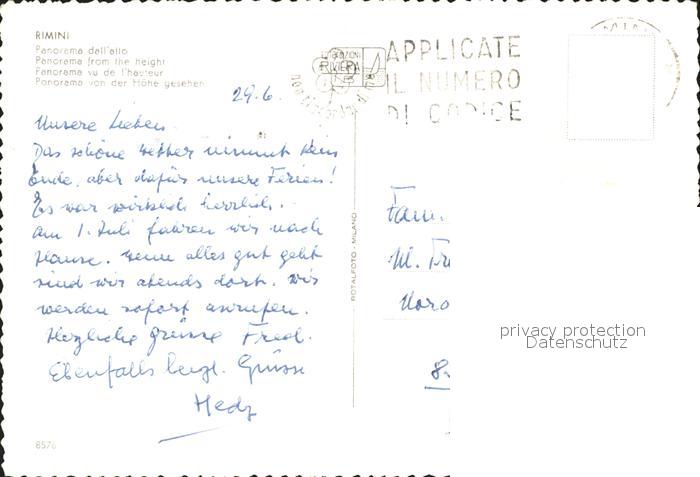 RIMINI
Panorama dall'alto
Panorama from the height
Panorama vu de l'hauteur
Panorama von der Höhe gesehen
29.6.
Unsere Lieben.
Das schöne Wetter nimmt kein
Ende, aber dafür unsere Ferien!
Es war wirklich herrlich.
Am 1. Juli fahren wir nach
Hause. Wenn alles gut geht
sind wir abends dort. Wir
werden sofort anrufen.
Herzliche Grüsse Fredl.
Ebenfalls herzl. Grüsse
Hedy
8576
ROTALFOTO - MILANO
RIVIERA
APPLICATE
IL NUMERO
DI CODICE
Fam.
M. Fr
8
privacy protection
Datenschutz